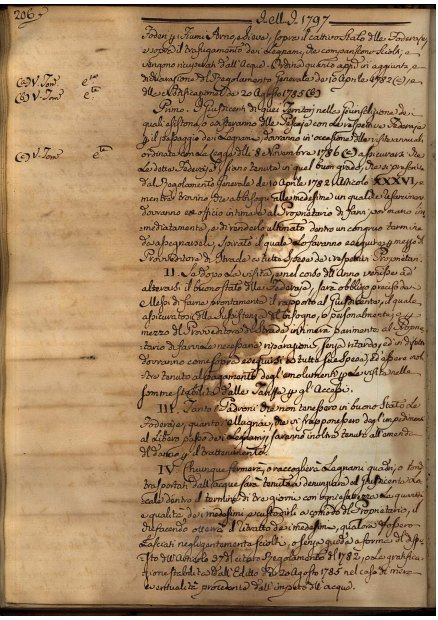 206
Dell' A. 1797
Foderj 4 Fiume Arno, ed' era, sopra il cattivo Stato delle Foderaje,
e sopra il trafugamento dei Legnami, che compariscono sciolti, e
vengono ricuperati dall' Acque. Ordina quanto appresso in aggiunta, e
dichiarazione del Regolamento Generale de 10 Aprile 1782 (a) e
delle Notificazioni de 20 Agosto 1785 (b)
(a) V. Tom
(b) V. Tom
Primo. I Giusdicenti di quei Territorj nella Giurisdizione dei
quali esistono, o caveranno delle Pescaje con le rispettive Foderaje
il passaggio dei Legnami, dovranno in occasione della visita annuale
ordinata con la Legge dell' 8 Novembre 1786 (c) assicurarsi se
(c) V. Tom
Le dette Foderaje siano tenute in quel buon grado, che è prescritto
dal Regolamento Generale de 10 Aprile 1782. Articolo XXXVI, e
mentre trovino che abbisogni alle medesime un qualche risarcimento
dovranno ex officio intimare al Proprietario di farvi por mano im
mediatamente, e di renderlo ultimato dentro un congruo termine
da assegnarseli, spirato il quale lo faranno eseguire 4 mezzo del
Provveditore di Strade a tutte spese dei respettivi Proprietarj.
II. Se dopo la visita, e nel corso dell' Anno venisse ad
alterarsi il buono stato delle Foderaje, sarà obbligo preciso dei
Messi di farne prontamente il rapporto al Giusdicente, il quale
assicuratosi della sussistenza del bisogno, o personalmente, o 4
mezzo del Provveditore di Strade intimerà parimente al Proprie
tario di farvi le necessarie riparazioni senza ritardo, ed in difetto
dovranno come sopra eseguirsi a tutte sue spese, ed essere inol
tre tenuto al pagamento degl' emolumenti 4 le visite nelle
somme stabilite dalle Tariffe 4 gl' Accessi.
III. Tanto i Padroni che non tenessero in buono stato le
Foderaje, quanto i Mugnai, che vi frapponessero degl' impedimenti
al libero passo dei Legnami, saranno inoltre tenuti all' amenda
del danno 4 il trattenimento.
IV. Chiunque fermerà, o raccoglierà Legnami quadri, o tondi
trasportati dall' acque sarà tenuto a denunziarli al Giusdicente
Locale dentro il termine di tre giorni con significazione la quantità
e qualità dei medesimi e custodirli a comodo del Proprietario, il
che facendo otterrà il ribatto dei medesimi, qualora fossero
lasciati negligentemente sciolti, o senza guida a forma del dispo
sto dell' Articolo 37 del citato Regolamento del 1782, e la gratifica
zione stabilita dall' Editto de 20 Agosto 1785 nel caso di mera
eventualità procedente dall' impeto dell' acque.